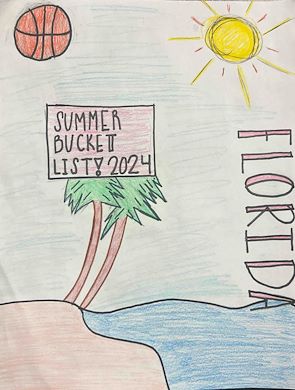 SUMMER
BUCKETT
LIST! 2024
FLORIDA